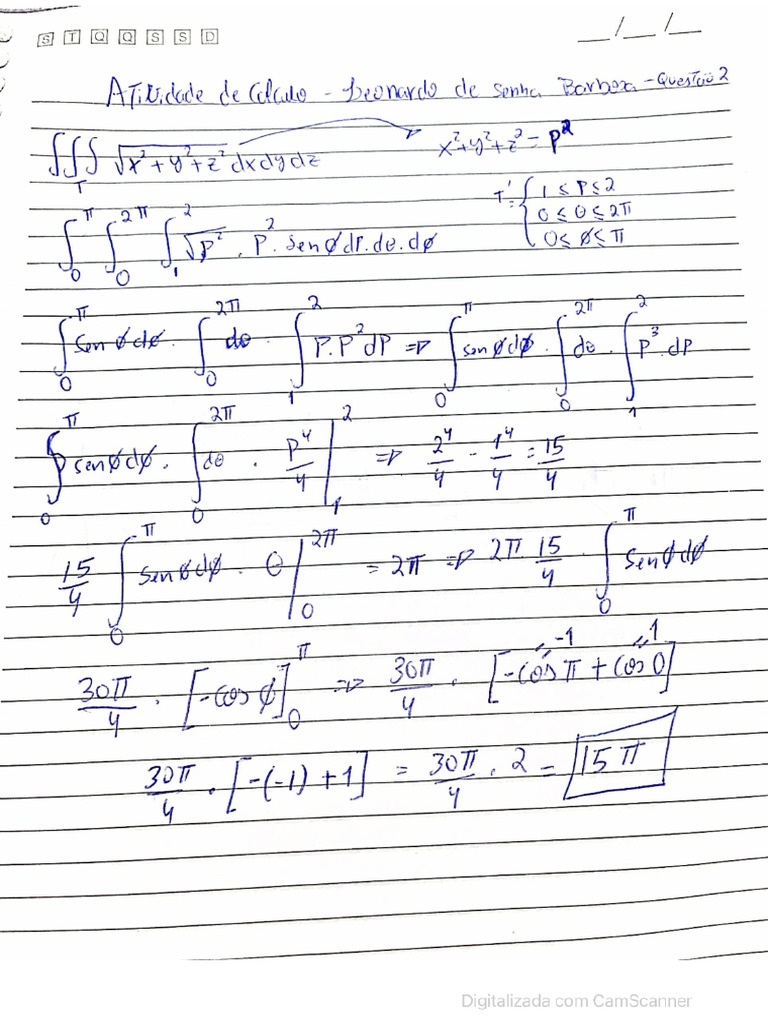 S T Q Q S S D __/__/__
Atividade de Cálculo - Leonardo de Senna Barbosa - Questão 2
∭_T √(x²+y²+z²) dxdydz → x²+y²+z² = ρ²
∫_0^π ∫_0^2π ∫_1^2 √ρ² . ρ² . sen ø dρ . dθ . dø T' = { 1 ≤ ρ ≤ 2 0 ≤ θ ≤ 2π 0 ≤ ø ≤ π
∫_0^π sen ø dø . ∫_0^2π dθ . ∫_1^2 ρ . ρ² dρ => ∫_0^π sen ø dø . ∫_0^2π dθ . ∫_1^2 ρ³ . dρ
∫_0^π sen ø dø . ∫_0^2π dθ . ρ⁴/4 |_1^2 => 2⁴/4 - 1⁴/4 = 15/4
15/4 ∫_0^π sen ø dø . θ |_0^2π = 2π => 2π . 15/4 . ∫_0^π sen ø dø
30π/4 . [-cos ø]_0^π => 30π/4 . [-cos π + cos 0] -1 1
30π/4 . [-(-1) + 1] = 30π/4 . 2 = 15 π
Digitalizada com CamScanner